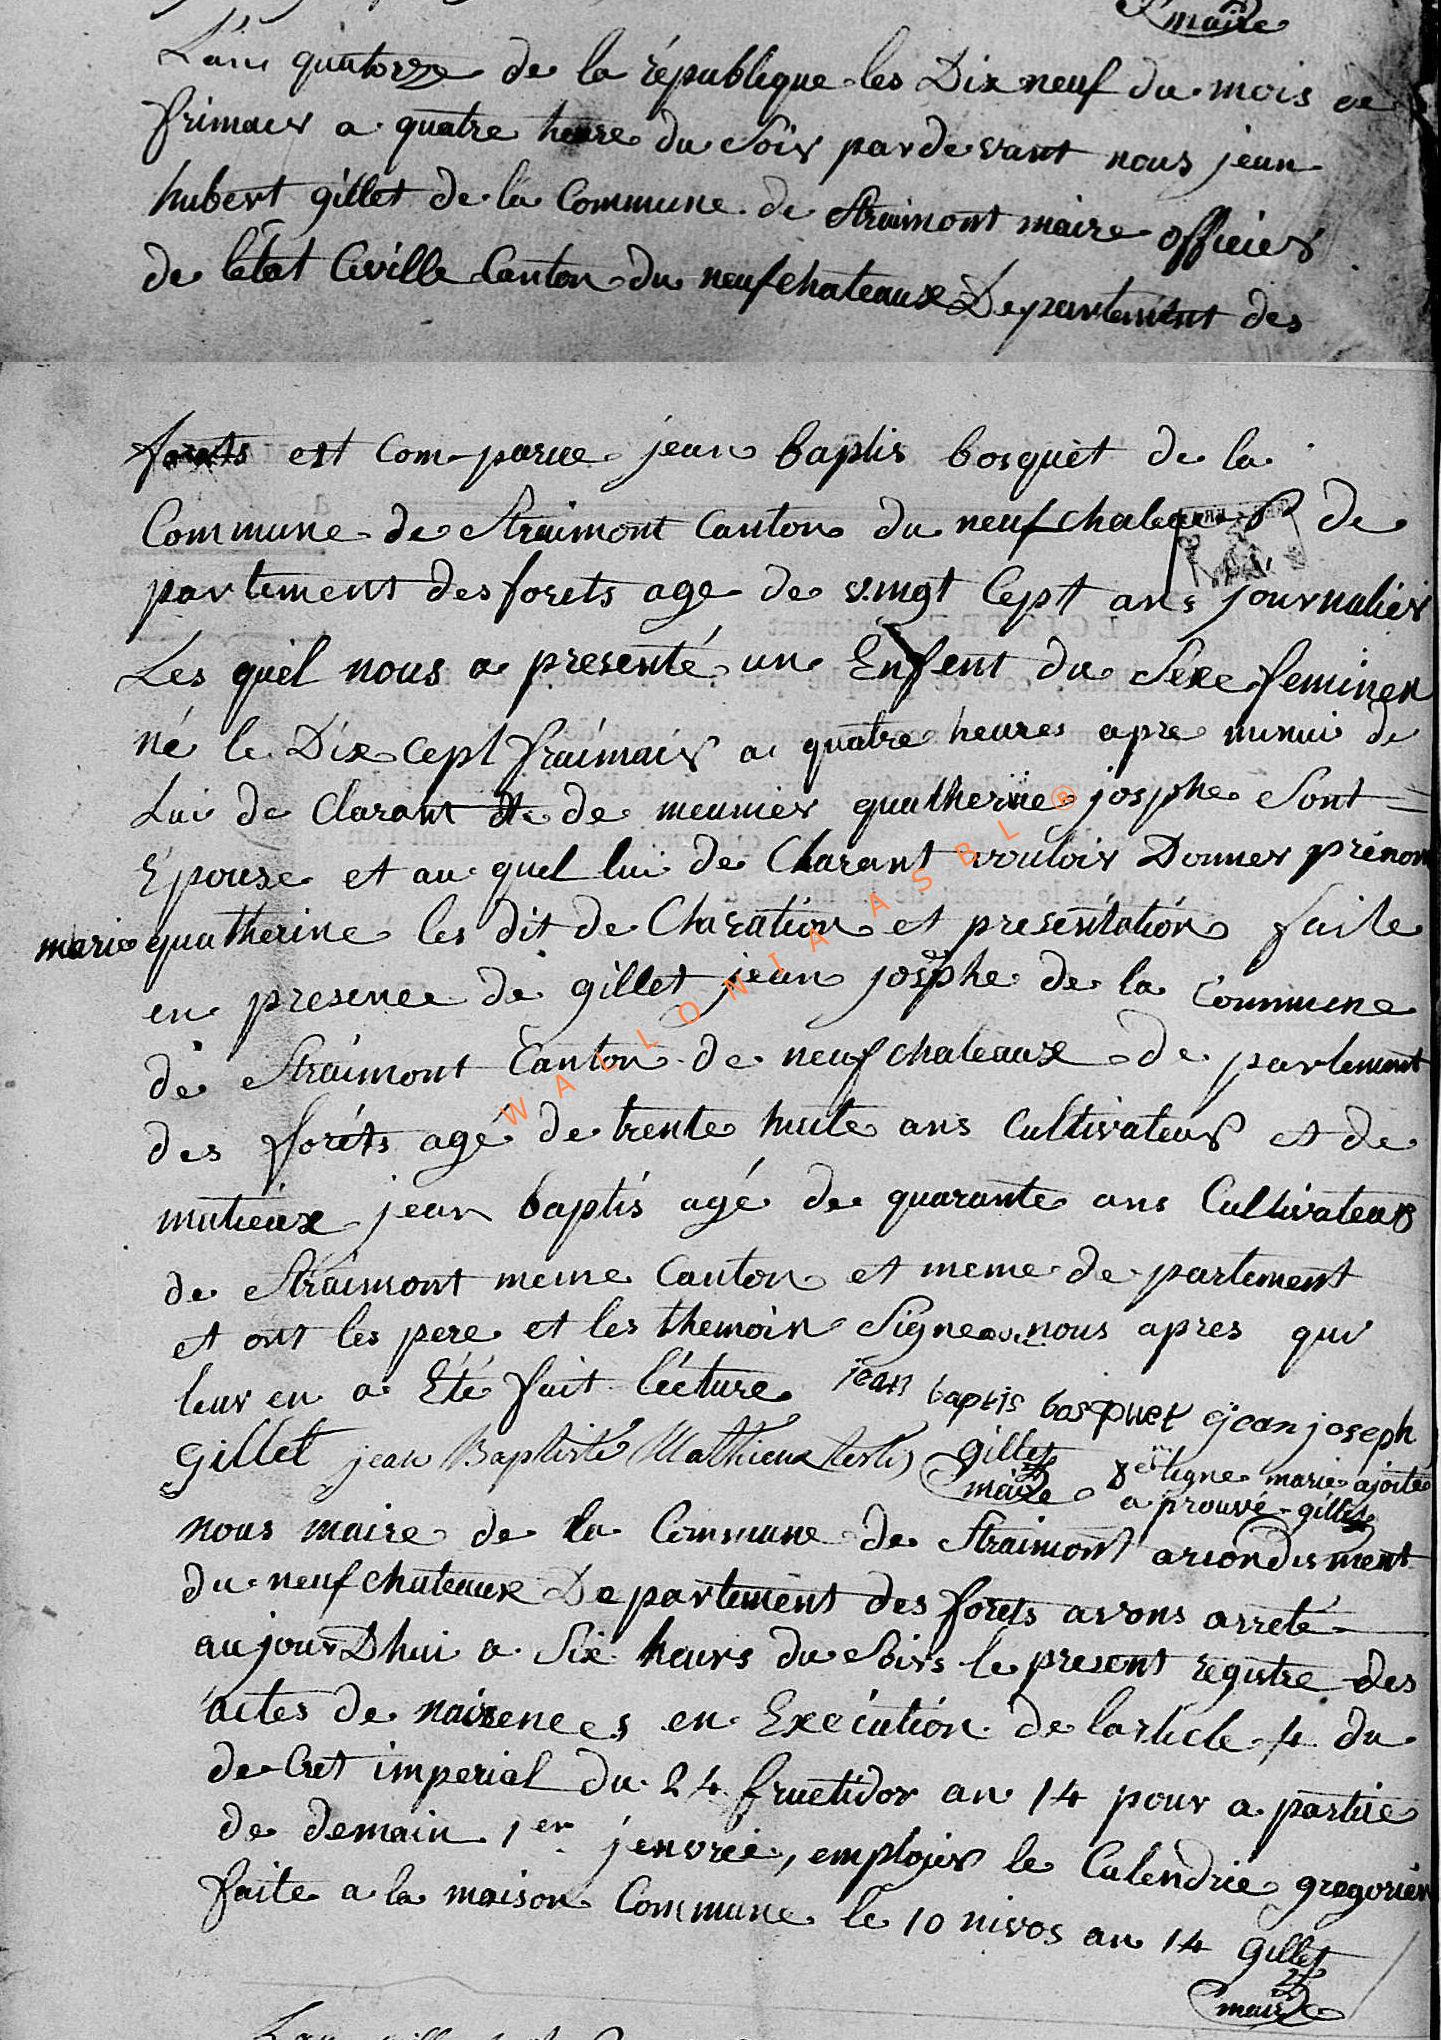 maire
L'an quatorze de la républeque les Dix neuf du mois de
frimaer a quatre heure du Soir par de vant nous jean
hubert gillet de la Commune de Straimont maire officier
de létat Civille Canton du neufchateaux Departement des
forets est com-parue jean baptis bosquet de la
Commune de Straimont canton du neufchateaux de
partement des forets age de vingt Cept ans journalier
Les quel nous a presenté un Enfent du Sexe feminen
né le Dix cept fraimair a quatre heures apre minui de
Lui de Clarant de meunier quatherine josphe Sont
Epouse et au quel lui de Charant vouloir Donner prénom
marie quatherine les dit de Charation et presentation faite
en presence de gillet jean josephe de la Commune
de Straimont Canton de neufchateaux de partement
des foréts agé de trente huite ans Cultivateur et de
mutieux jean baptis agé de quarante ans Cultivateur
de Straimont meme Canton et meme de partement
et ont les pere et les themoin Signe avec nous apres qui
leur en a Eté fait lécture jean baptis bosquet jean joseph
gillet jean Baptiste Mathieux gillet 8em ligne marie ajoité
maire a prouvé gillet
nous maire de la Commune de Straimont arondisment
du neufchateaux Departement des forets avons arreté
aujourDhui a Six heurs du Soirs le present registre des
actes de naisences en Execution de larticle 4 du
de Cret imperial du 24 fructidor an 14 pour a partire
de demain 1er jenvrie, emplojer le Calendrie gregorien
faite a la maison Commune le 10 nivos an 14 gillet
maire
WALLONIA ASBL ®